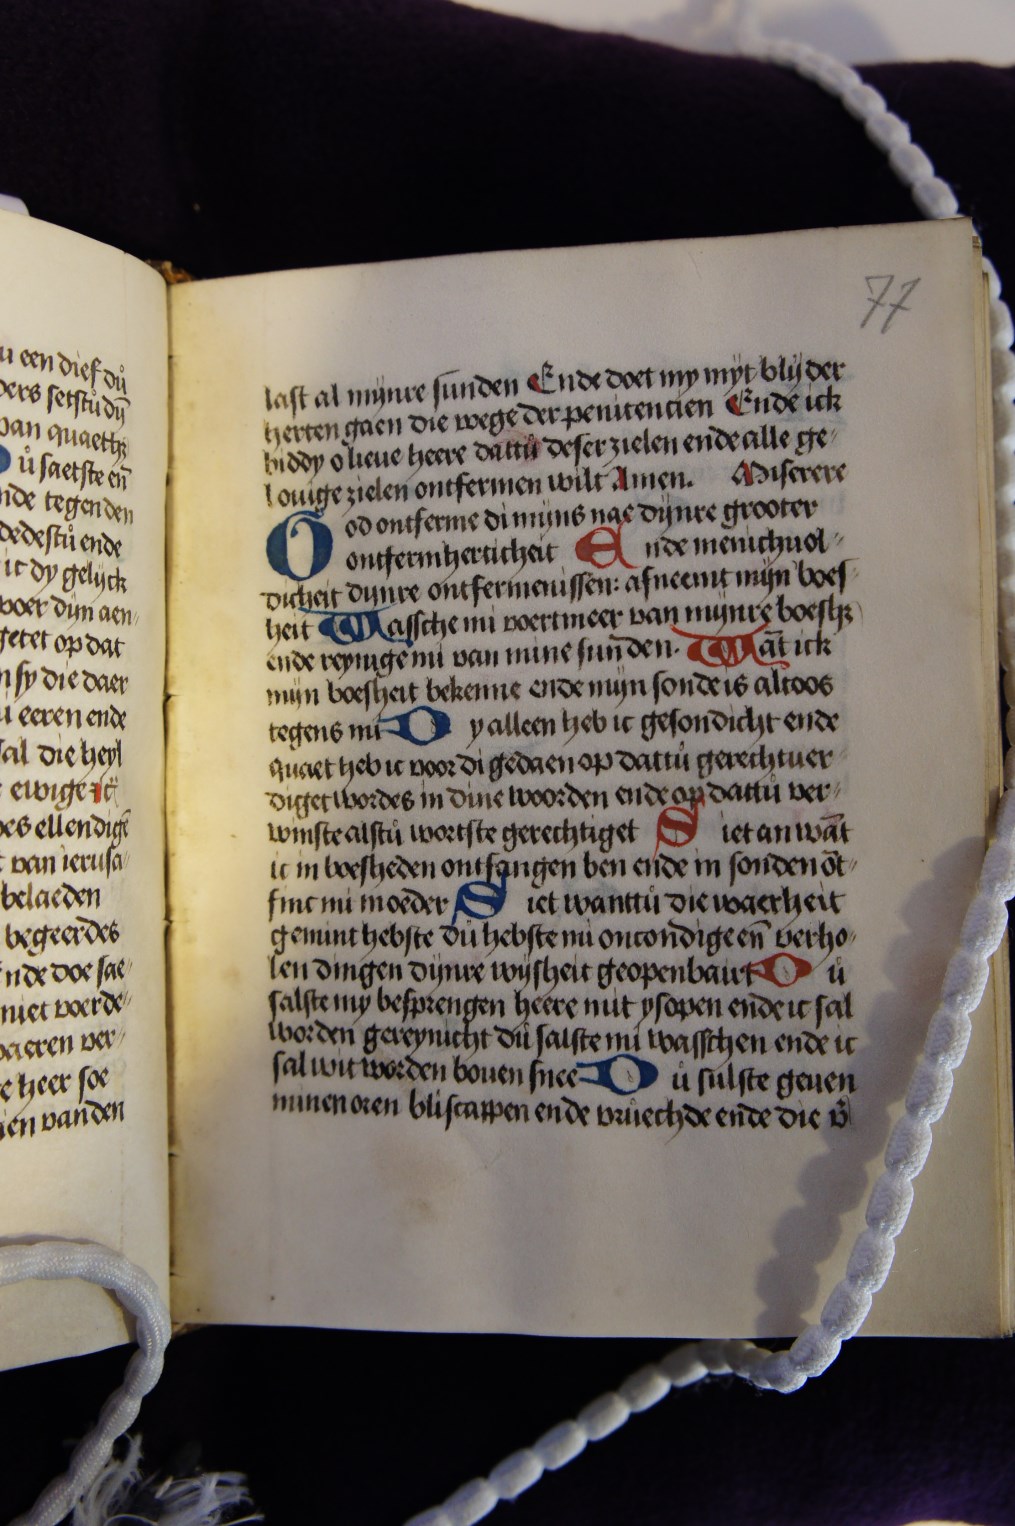 u een dief dů
ders setstu dȳ
van quaetħ
ů saetste en̄
nde tegen den
dedestů ende
ic dy gelyck
voer dijn aen
getet op dat
sy die daer
u eeren ende
sal die heyl
ewige
es ellendigē
van ierusa
belaeden
begeerdes
nde doe sae
niet voerde
baeren ver
e heer soe
ien vanden
77
last al mijnre sunden Ende doet my myt blijder
herten gaen die wege der penitencien Ende ick
biddy o lieue heere dattů deser zielen ende alle ge
louige zielen ontfermen wilt Amen. Miserere
God ontferme di mijns nae dijnre grooter
ontfermherticheit Ende menichuol
dicheit dijnre ontfermenissen: afneemt mijn boes
heit Wassche mi voertmeer van mijnre boesħ
ende reynige mi van mine sunden. Wāt ick
mijn boesheit bekenne ende mijn sonde is altoos
tegens mi Dy alleen heb ic gesondicht ende
quaet heb ic voor di gedaen op dattů gerechtuer
diget wordes in dine woorden ende op dattů ver
winste alstů wortste gerechtiget Siet an wāt
ic in boesheden ontfangen ben ende in sonden ōt
finc mi moeder Siet wanttů die waerheit
gemint hebste dů hebste mi oncondige en̄ verho
len dingen dijnre wijsheit geopenbairt Dů
salste my besprengen heere mit ysopen ende ic sal
worden gereynicht dů salste mi wasschen ende ic
sal wit worden bouen snee Dů sulste geuen
minen oren bliscappen ende vruechde ende die v̄